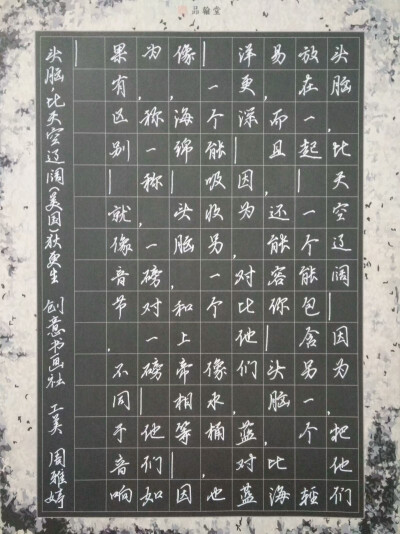 品翰堂
头脑,比天空辽阔—因为,把他们
放在一起—一个能包含另一个,轻
易,而且,还能容你—头脑,比海
洋更深—因为,对比他们,蓝对蓝
—一个能吸收另一个,像水桶,也
像,海绵—头脑,和上帝相等—因
为,称一称,一磅对一磅—他们,如
果有区别—就像音节,不同于音响
—
头脑,比天空辽阔(美国)狄更生 创意书画社 工美 周雅婷